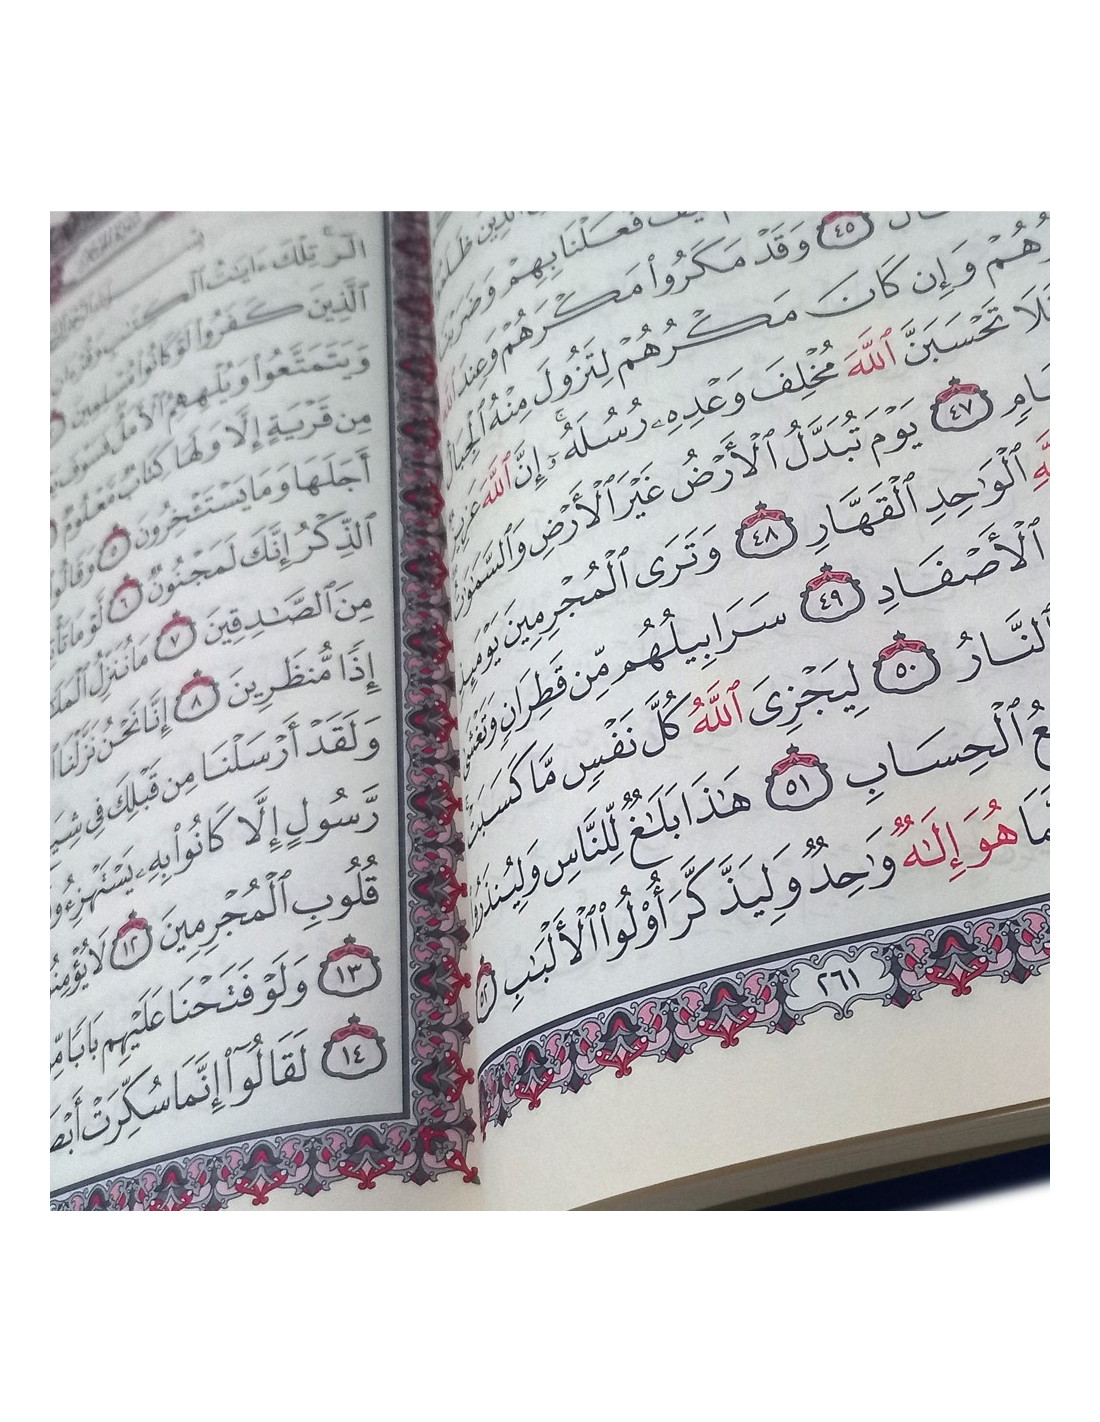 فَعَلْنَا بِهِمْ وَضَرَبْنَا
٤٥ وَقَدْ مَكَرُوا۟ مَكْرَهُمْ وَعِندَ ٱللَّهِ
رُهُمْ وَإِن كَانَ مَكْرُهُمْ لِتَزُولَ مِنْهُ ٱلْجِبَالُ
فَلَا تَحْسَبَنَّ ٱللَّهَ مُخْلِفَ وَعْدِهِۦ رُسُلَهُۥٓ ۗ إِنَّ ٱللَّهَ عَزِيزٌ
ٱنتِقَامٍ ٤٧ يَوْمَ تُبَدَّلُ ٱلْأَرْضُ غَيْرَ ٱلْأَرْضِ وَٱلسَّمَٰوَٰتُ
ٱلْوَٰحِدِ ٱلْقَهَّارِ ٤٨ وَتَرَى ٱلْمُجْرِمِينَ يَوْمَئِذٍ
ٱلْأَصْفَادِ ٤٩ سَرَابِيلُهُم مِّن قَطِرَانٍ وَتَغْشَىٰ
ٱلنَّارُ ٥٠ لِيَجْزِىَ ٱللَّهُ كُلَّ نَفْسٍ مَّا كَسَبَتْ
عُ ٱلْحِسَابِ ٥١ هَٰذَا بَلَٰغٌ لِّلنَّاسِ وَلِيُنذَرُوا۟
مَا هُوَ إِلَٰهٌ وَٰحِدٌ وَلِيَذَّكَّرَ أُو۟لُوا۟ ٱلْأَلْبَٰبِ ٥٢
٢٦١
الٓر تِلْكَ ءَايَٰتُ ٱلْكِتَٰبِ وَقُرْءَانٍ
ٱلَّذِينَ كَفَرُوا۟ لَوْ كَانُوا۟ مُسْلِمِينَ
وَيَتَمَتَّعُوا۟ وَيُلْهِهِمُ ٱلْأَمَلُ فَسَوْفَ
مِن قَرْيَةٍ إِلَّا وَلَهَا كِتَابٌ مَّعْلُومٌ
أَجَلَهَا وَمَا يَسْتَـْٔخِرُونَ ٥ وَقَالُوا۟
ٱلذِّكْرُ إِنَّكَ لَمَجْنُونٌ ٦ لَّوْ مَا تَأْ
مِنَ ٱلصَّٰدِقِينَ ٧ مَا نُنَزِّلُ ٱلْمَلَ
إِذًا مُّنظَرِينَ ٨ إِنَّا نَحْنُ نَزَّلْنَا
وَلَقَدْ أَرْسَلْنَا مِن قَبْلِكَ فِى شِيَ
رَّسُولٍ إِلَّا كَانُوا۟ بِهِۦ يَسْتَهْزِءُو
قُلُوبِ ٱلْمُجْرِمِينَ ١٢ لَا يُؤْمِنُ
١٣ وَلَوْ فَتَحْنَا عَلَيْهِم بَابًا مِّ
١٤ لَقَالُوٓا۟ إِنَّمَا سُكِّرَتْ أَبْصَ